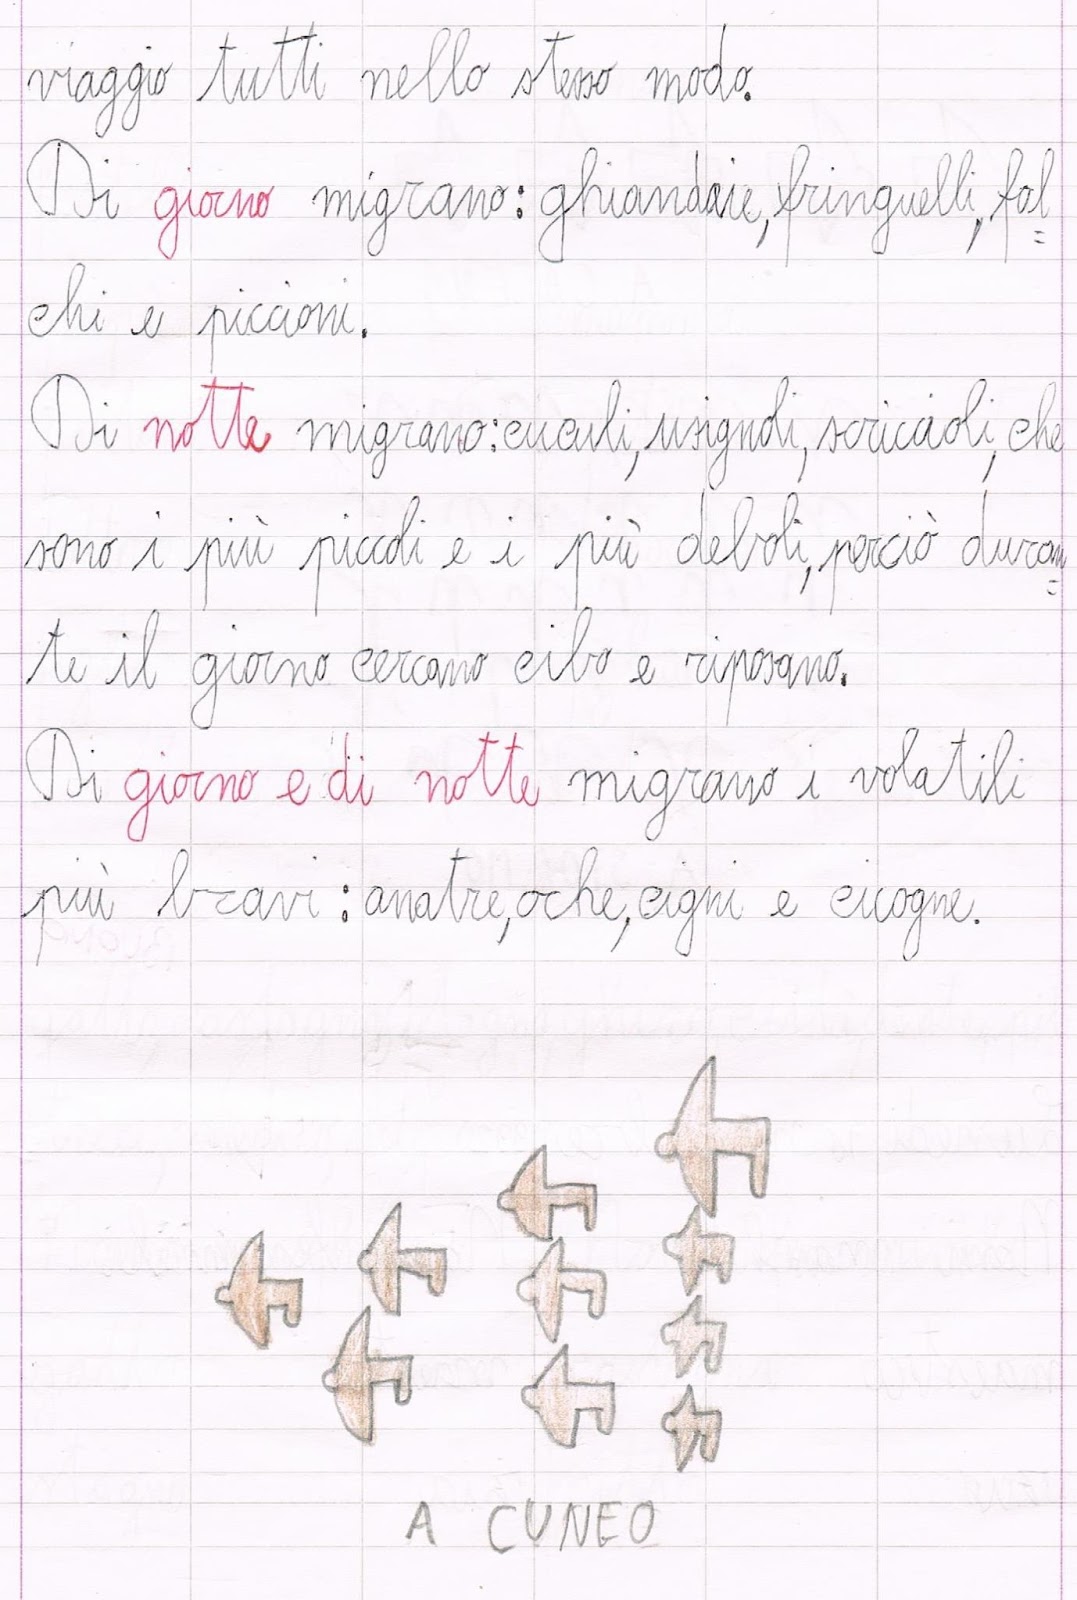 viaggio tutti nello stesso modo.
Di giorno migrano: ghiandaie, fringuelli, fal=
chi e piccioni.
Di notte migrano: cuculi, usignoli, scriccioli, che
sono i più piccoli e i più deboli, perciò duran=
te il giorno cercano cibo e riposano.
Di giorno e di notte migrano i volatili
più bravi: anatre, oche, cigni e cicogne.
A CUNEO